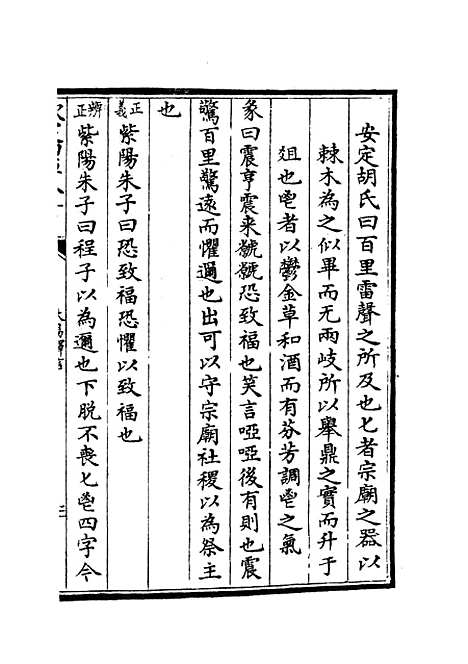 安定胡氏曰百里雷聲之所及也匕者宗廟之器以
棘木為之似畢而无兩歧所以舉鼎之實而升于
俎也鬯者以鬱金草和酒而有芬芳調鬯之氣
彖曰震亨震来虩虩恐致福也笑言啞啞後有則也震
驚百里驚遠而懼邇也出可以守宗廟社稷以為祭主
也
正義紫陽朱子曰恐致福恐懼以致福也
辨正紫陽朱子曰程子以為邇也下脱不喪匕鬯四字今